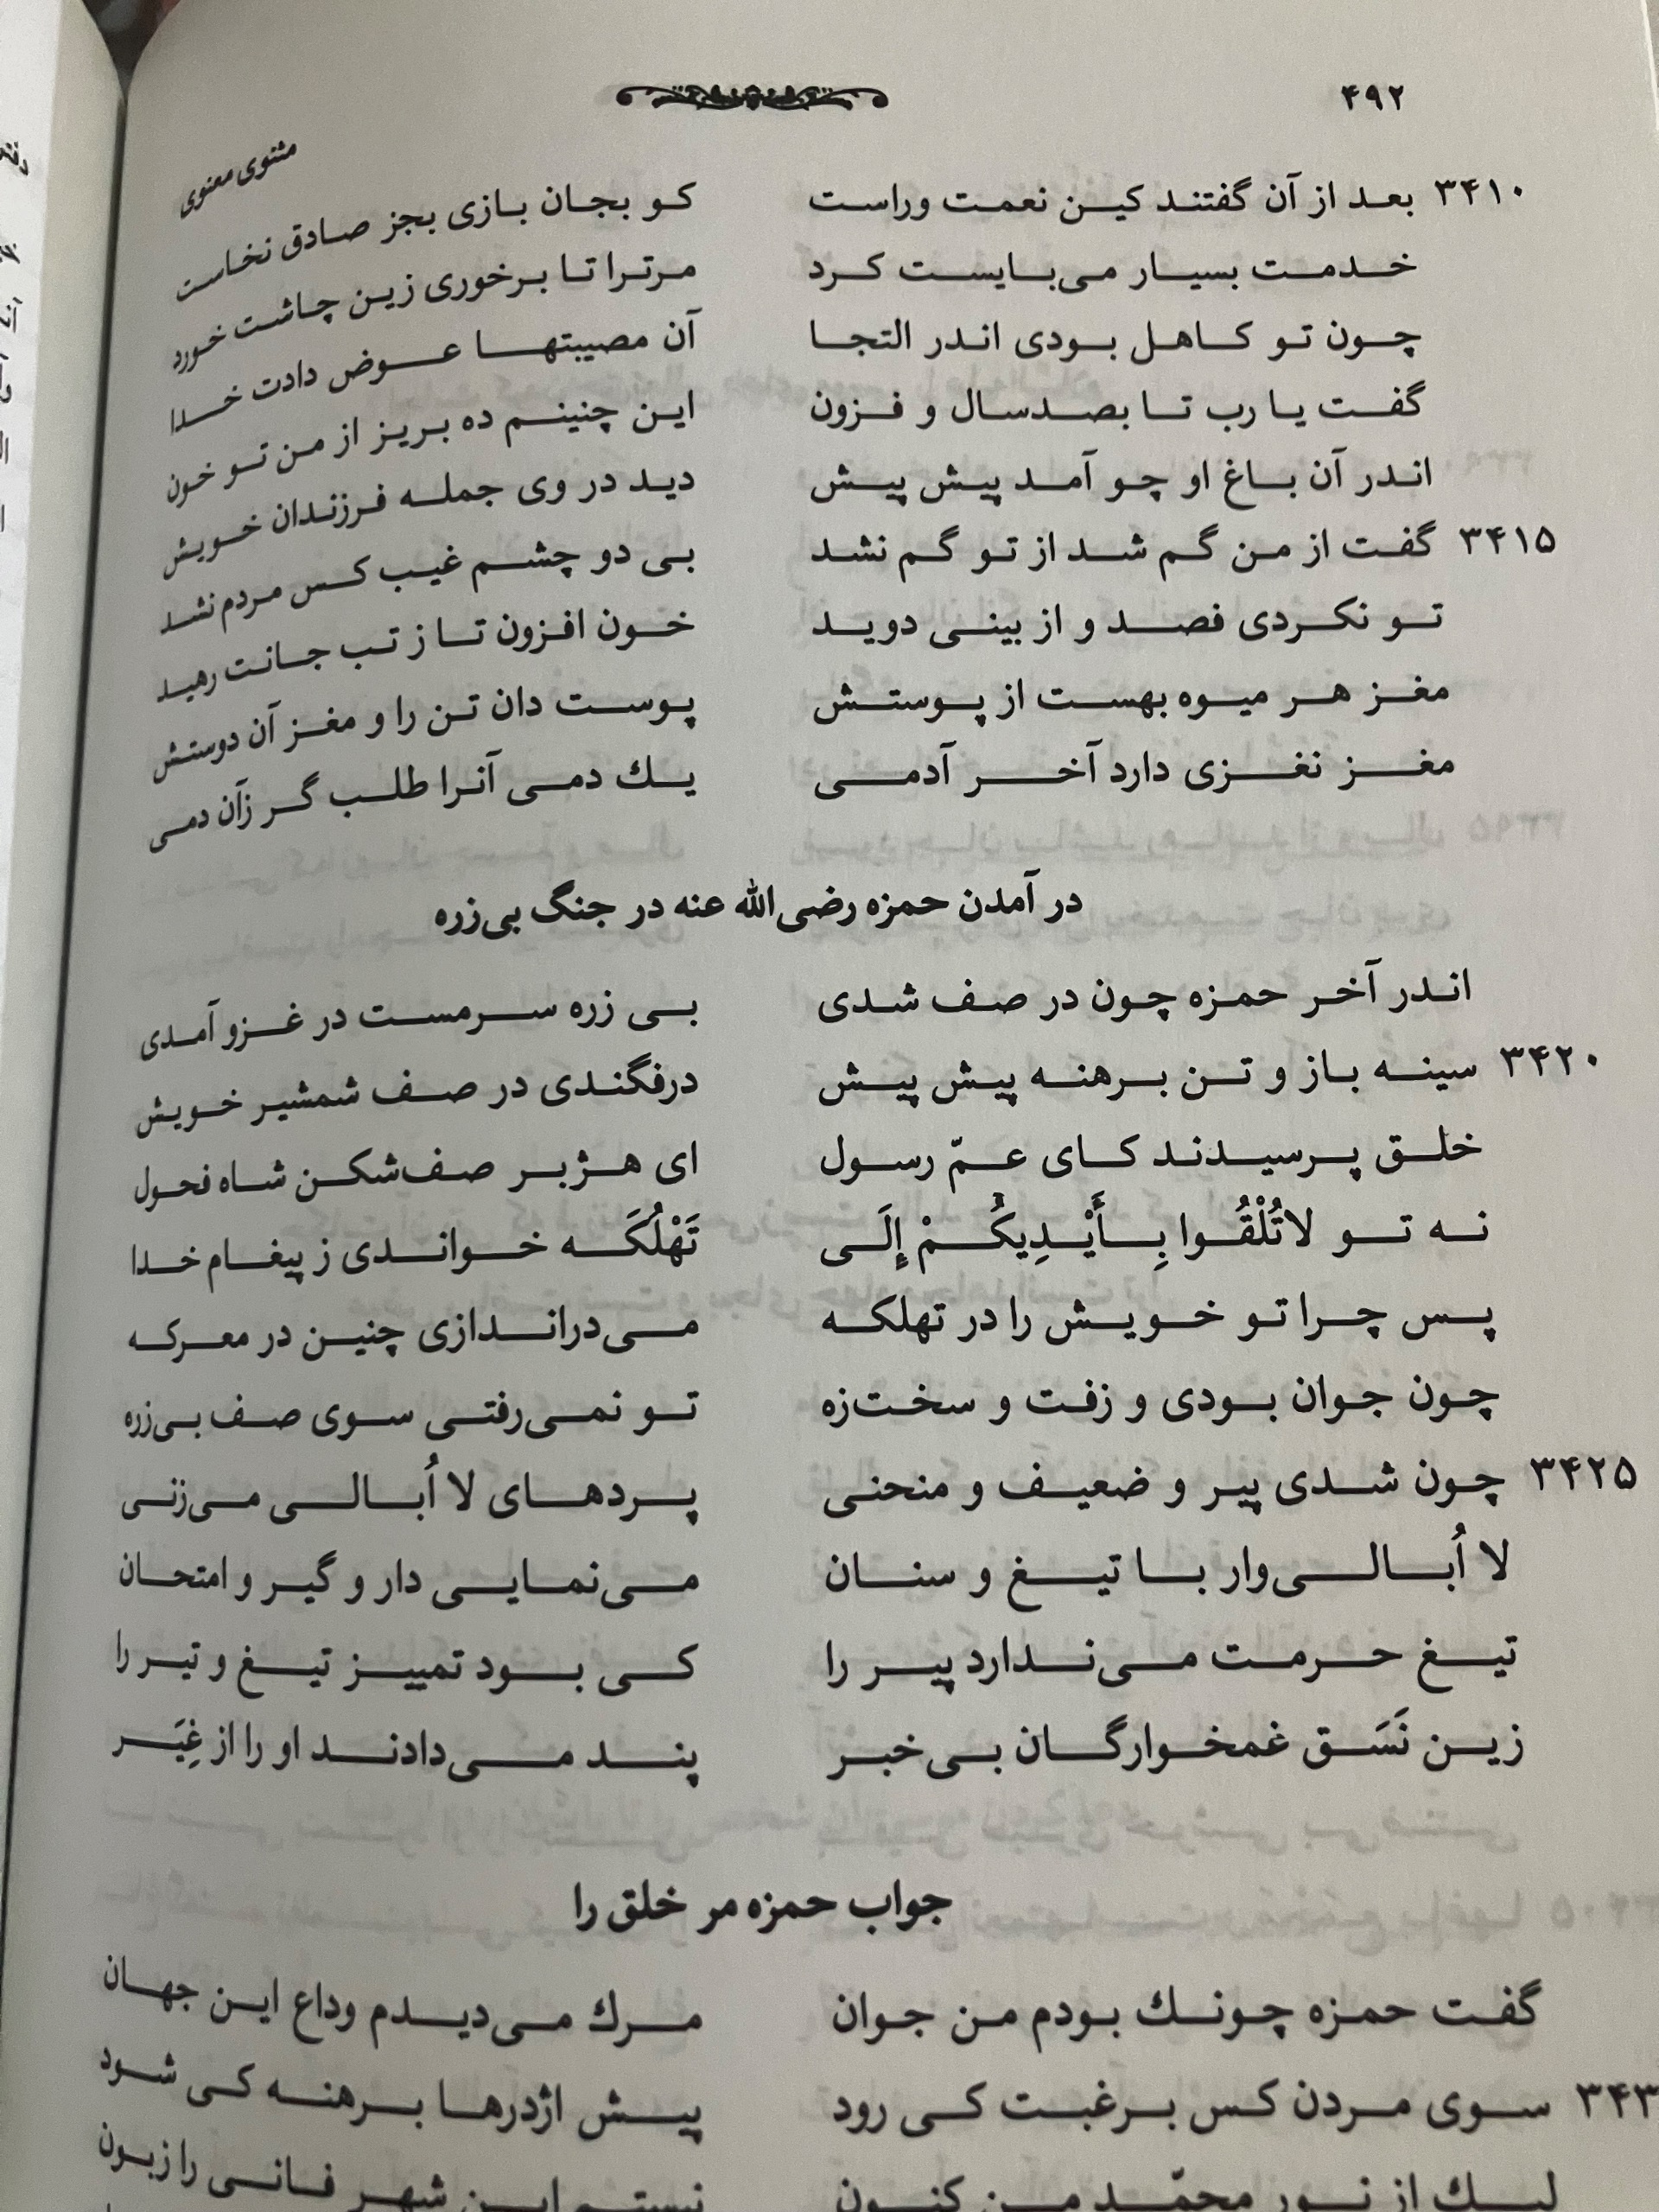 ۴۹۲
مثنوی معنوی
۳۴۱۰ بعد از آن گفتند کین نعمت وراست کو بجان بازی بجز صادق نخاست
خدمت بسیار می‌بایست کرد مرترا تا برخوری زین چاشت خورد
چون تو کاهل بودی اندر التجا آن مصیبتها عوض دادت خدا
گفت یا رب تا بصدسال و فزون این چنینم ده بریز از من تو خون
اندر آن باغ او چو آمد پیش پیش دید در وی جمله فرزندان خویش
۳۴۱۵ گفت از من گم شد از تو گم نشد بی دو چشم غیب کس مردم نشد
تو نکردی فصد و از بینی دوید خون افزون تا ز تب جانت رهید
مغز هر میوه بهست از پوستش پوست دان تن را و مغز آن دوستش
مغز نغزی دارد آخر آدمی یك دمی آنرا طلب گر زآن دمی
در آمدن حمزه رضی‌الله عنه در جنگ بی‌زره
اندر آخر حمزه چون در صف شدی بی زره سرمست در غزو آمدی
۳۴۲۰ سینه باز و تن برهنه پیش پیش درفگندی در صف شمشیر خویش
خلق پرسیدند کای عمّ رسول ای هژبر صف‌شکن شاه فحول
نه تو لاتُلْقُوا بِأَیْدِیکُمْ إِلَی تَهْلُکَه خواندی ز پیغام خدا
پس چرا تو خویش را در تهلکه می‌دراندازی چنین در معرکه
چون جوان بودی و زفت و سخت‌زه تو نمی‌رفتی سوی صف بی‌زره
۳۴۲۵ چون شدی پیر و ضعیف و منحنی پردهای لا اُبالی می‌زنی
لا اُبالی‌وار با تیغ و سنان می‌نمایی دار و گیر و امتحان
تیغ حرمت می‌ندارد پیر را کی بود تمییز تیغ و تیر را
زین نَسَق غمخوارگان بی‌خبر پند می‌دادند او را از غِیَر
جواب حمزه مر خلق را
گفت حمزه چونك بودم من جوان مرك می‌دیدم وداع این جهان
۳۴۳ سوی مردن کس برغبت کی رود پیش اژدرها برهنه کی شود
لیك از نور محمّد من کنون نیستم این شهر فانی را زبون